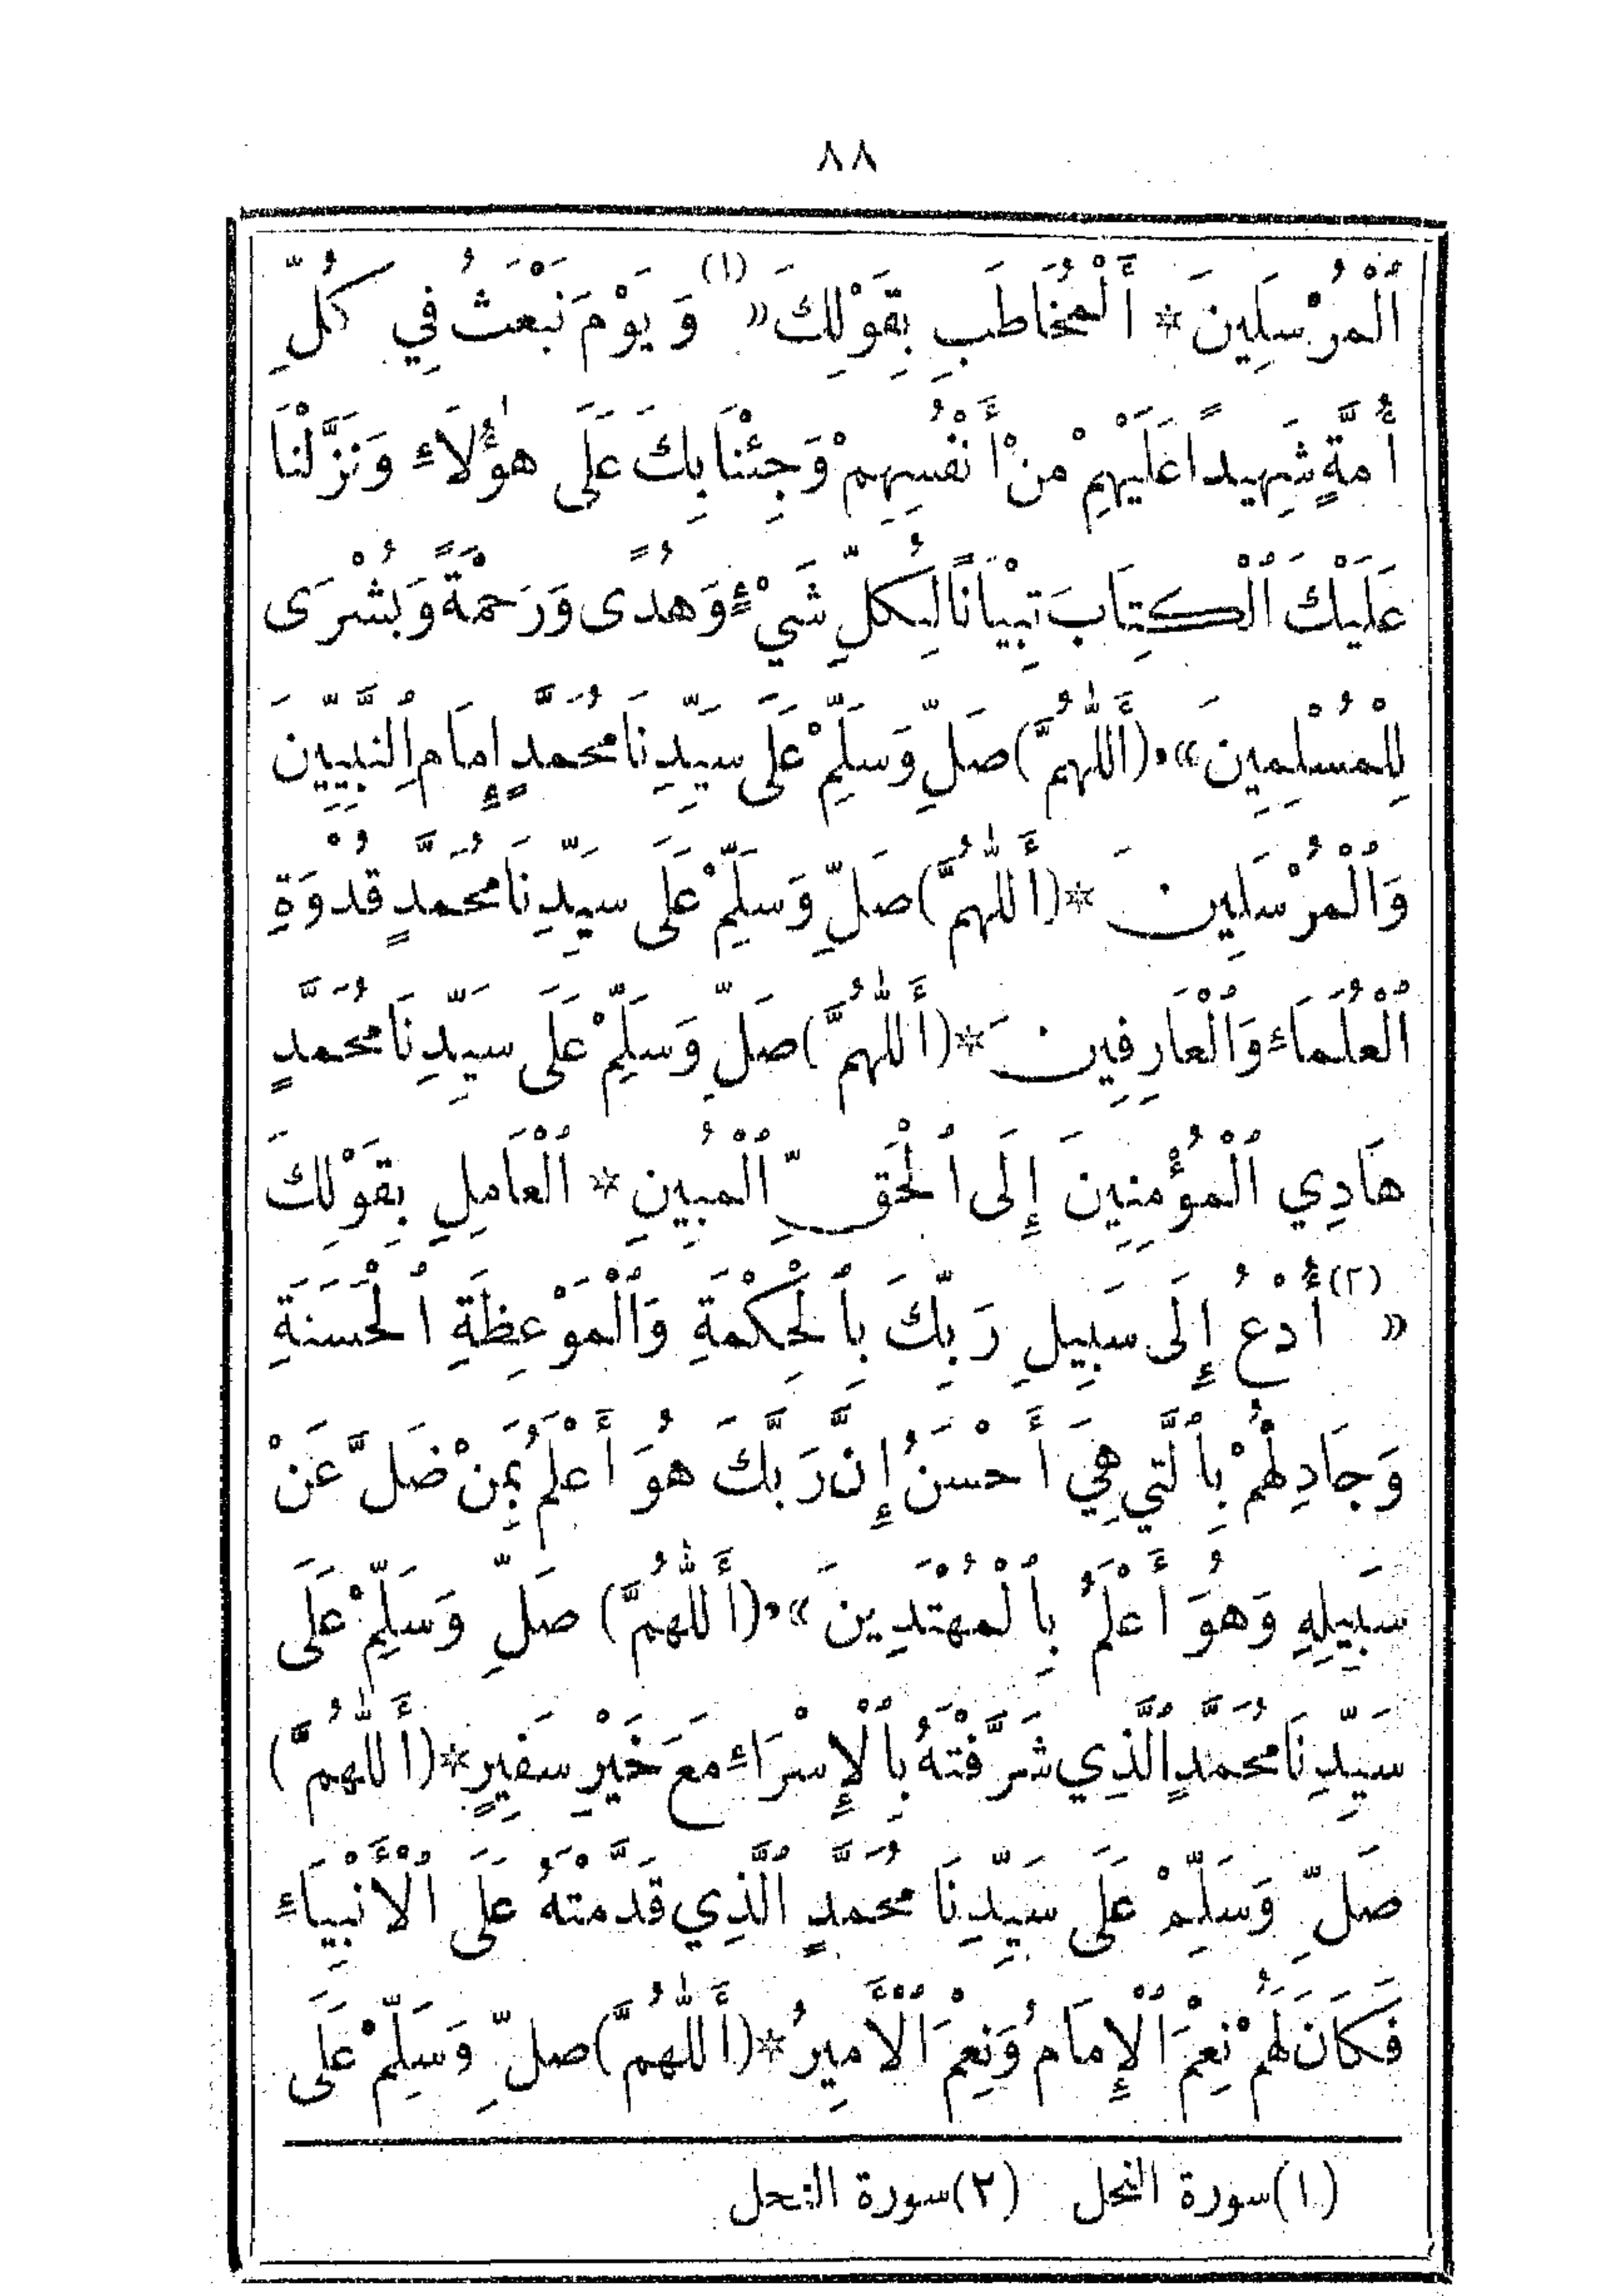 ٨٨
ٱلْمُرْسَلِينَ * أَلْمُخَاطَبِ بِقَوْلِكَ « (١) وَيَوْمَ نَبْعَثُ فِي كُلِّ
أُمَّةٍ شَهِيدًا عَلَيْهِمْ مِنْ أَنْفُسِهِمْ وَجِئْنَا بِكَ عَلَى هٰؤُلَاءِ وَنَزَّلْنَا
عَلَيْكَ ٱلْكِتَابَ تِبْيَانًا لِكُلِّ شَيْءٍ وَهُدًى وَرَحْمَةً وَبُشْرَى
لِلْمُسْلِمِينَ » . (أَللّٰهُمَّ) صَلِّ وَسَلِّمْ عَلَى سَيِّدِنَا مُحَمَّدٍ إِمَامِ ٱلنَّبِيِّينَ
وَٱلْمُرْسَلِينَ * (أَللّٰهُمَّ) صَلِّ وَسَلِّمْ عَلَى سَيِّدِنَا مُحَمَّدٍ قُدْوَةِ
ٱلْعُلَمَاءِ وَٱلْعَارِفِينَ * (أَللّٰهُمَّ) صَلِّ وَسَلِّمْ عَلَى سَيِّدِنَا مُحَمَّدٍ
هَادِي ٱلْمُؤْمِنِينَ إِلَى ٱلْحَقِّ ٱلْمُبِينِ * ٱلْعَامِلِ بِقَوْلِكَ
« (٢) أُدْعُ إِلَى سَبِيلِ رَبِّكَ بِٱلْحِكْمَةِ وَٱلْمَوْعِظَةِ ٱلْحَسَنَةِ
وَجَادِلْهُمْ بِٱلَّتِي هِيَ أَحْسَنُ إِنَّ رَبَّكَ هُوَ أَعْلَمُ بِمَنْ ضَلَّ عَنْ
سَبِيلِهِ وَهُوَ أَعْلَمُ بِٱلْمُهْتَدِينَ » . (أَللّٰهُمَّ) صَلِّ وَسَلِّمْ عَلَى
سَيِّدِنَا مُحَمَّدٍ ٱلَّذِي شَرَّفْتَهُ بِٱلْإِسْرَاءِ مَعَ خَيْرِ سَفِيرٍ * (أَللّٰهُمَّ)
صَلِّ وَسَلِّمْ عَلَى سَيِّدِنَا مُحَمَّدٍ ٱلَّذِي قَدَّمْتَهُ عَلَى ٱلْأَنْبِيَاءِ
فَكَانَ لَهُمْ نِعْمَ ٱلْإِمَامُ وَنِعْمَ ٱلْأَمِيرُ * (أَللّٰهُمَّ) صَلِّ وَسَلِّمْ عَلَى
(١) سورة النحل (٢) سورة النحل